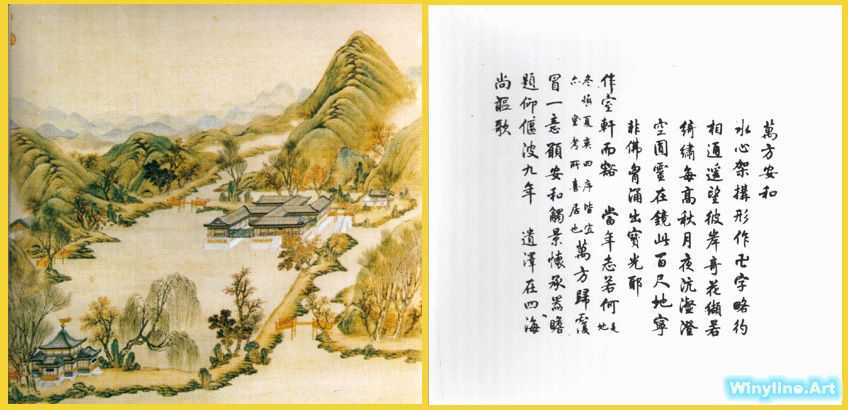 萬方安和
水心架搆形作卍字略彴
相通遥望彼岸奇花纈若
綺繡每髙秋月夜沆瀣澄
空圓靈在鏡此百尺地寧
非佛胷涌出寶光耶
作室軒而豁 當年志若何 是地
冬燠夏涼四序皆宜
皇考所喜居也 萬方歸覆
冒一意願安和觸景懷承器瞻
題仰偃波九年 遺澤在四海
尚謳歌
Winyline.Art